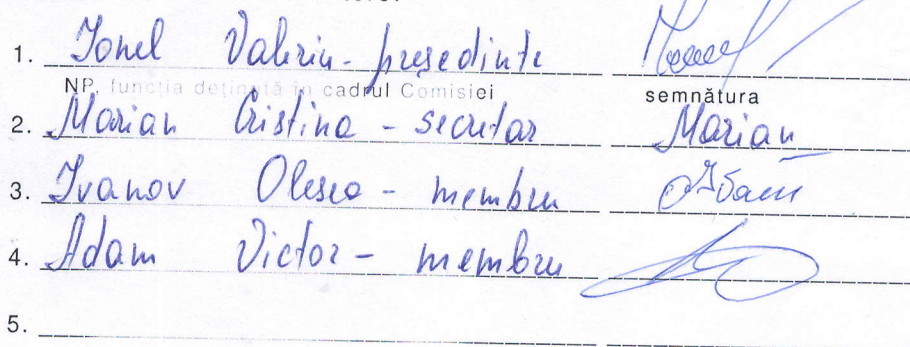 1. Ionel Valeriu - președinte
NP, funcția deținută în cadrul Comisiei semnătura
2. Marian Cristina - secretar Marian
3. Ivanov Olesea - membru
4. Adam Victor - membru
5.